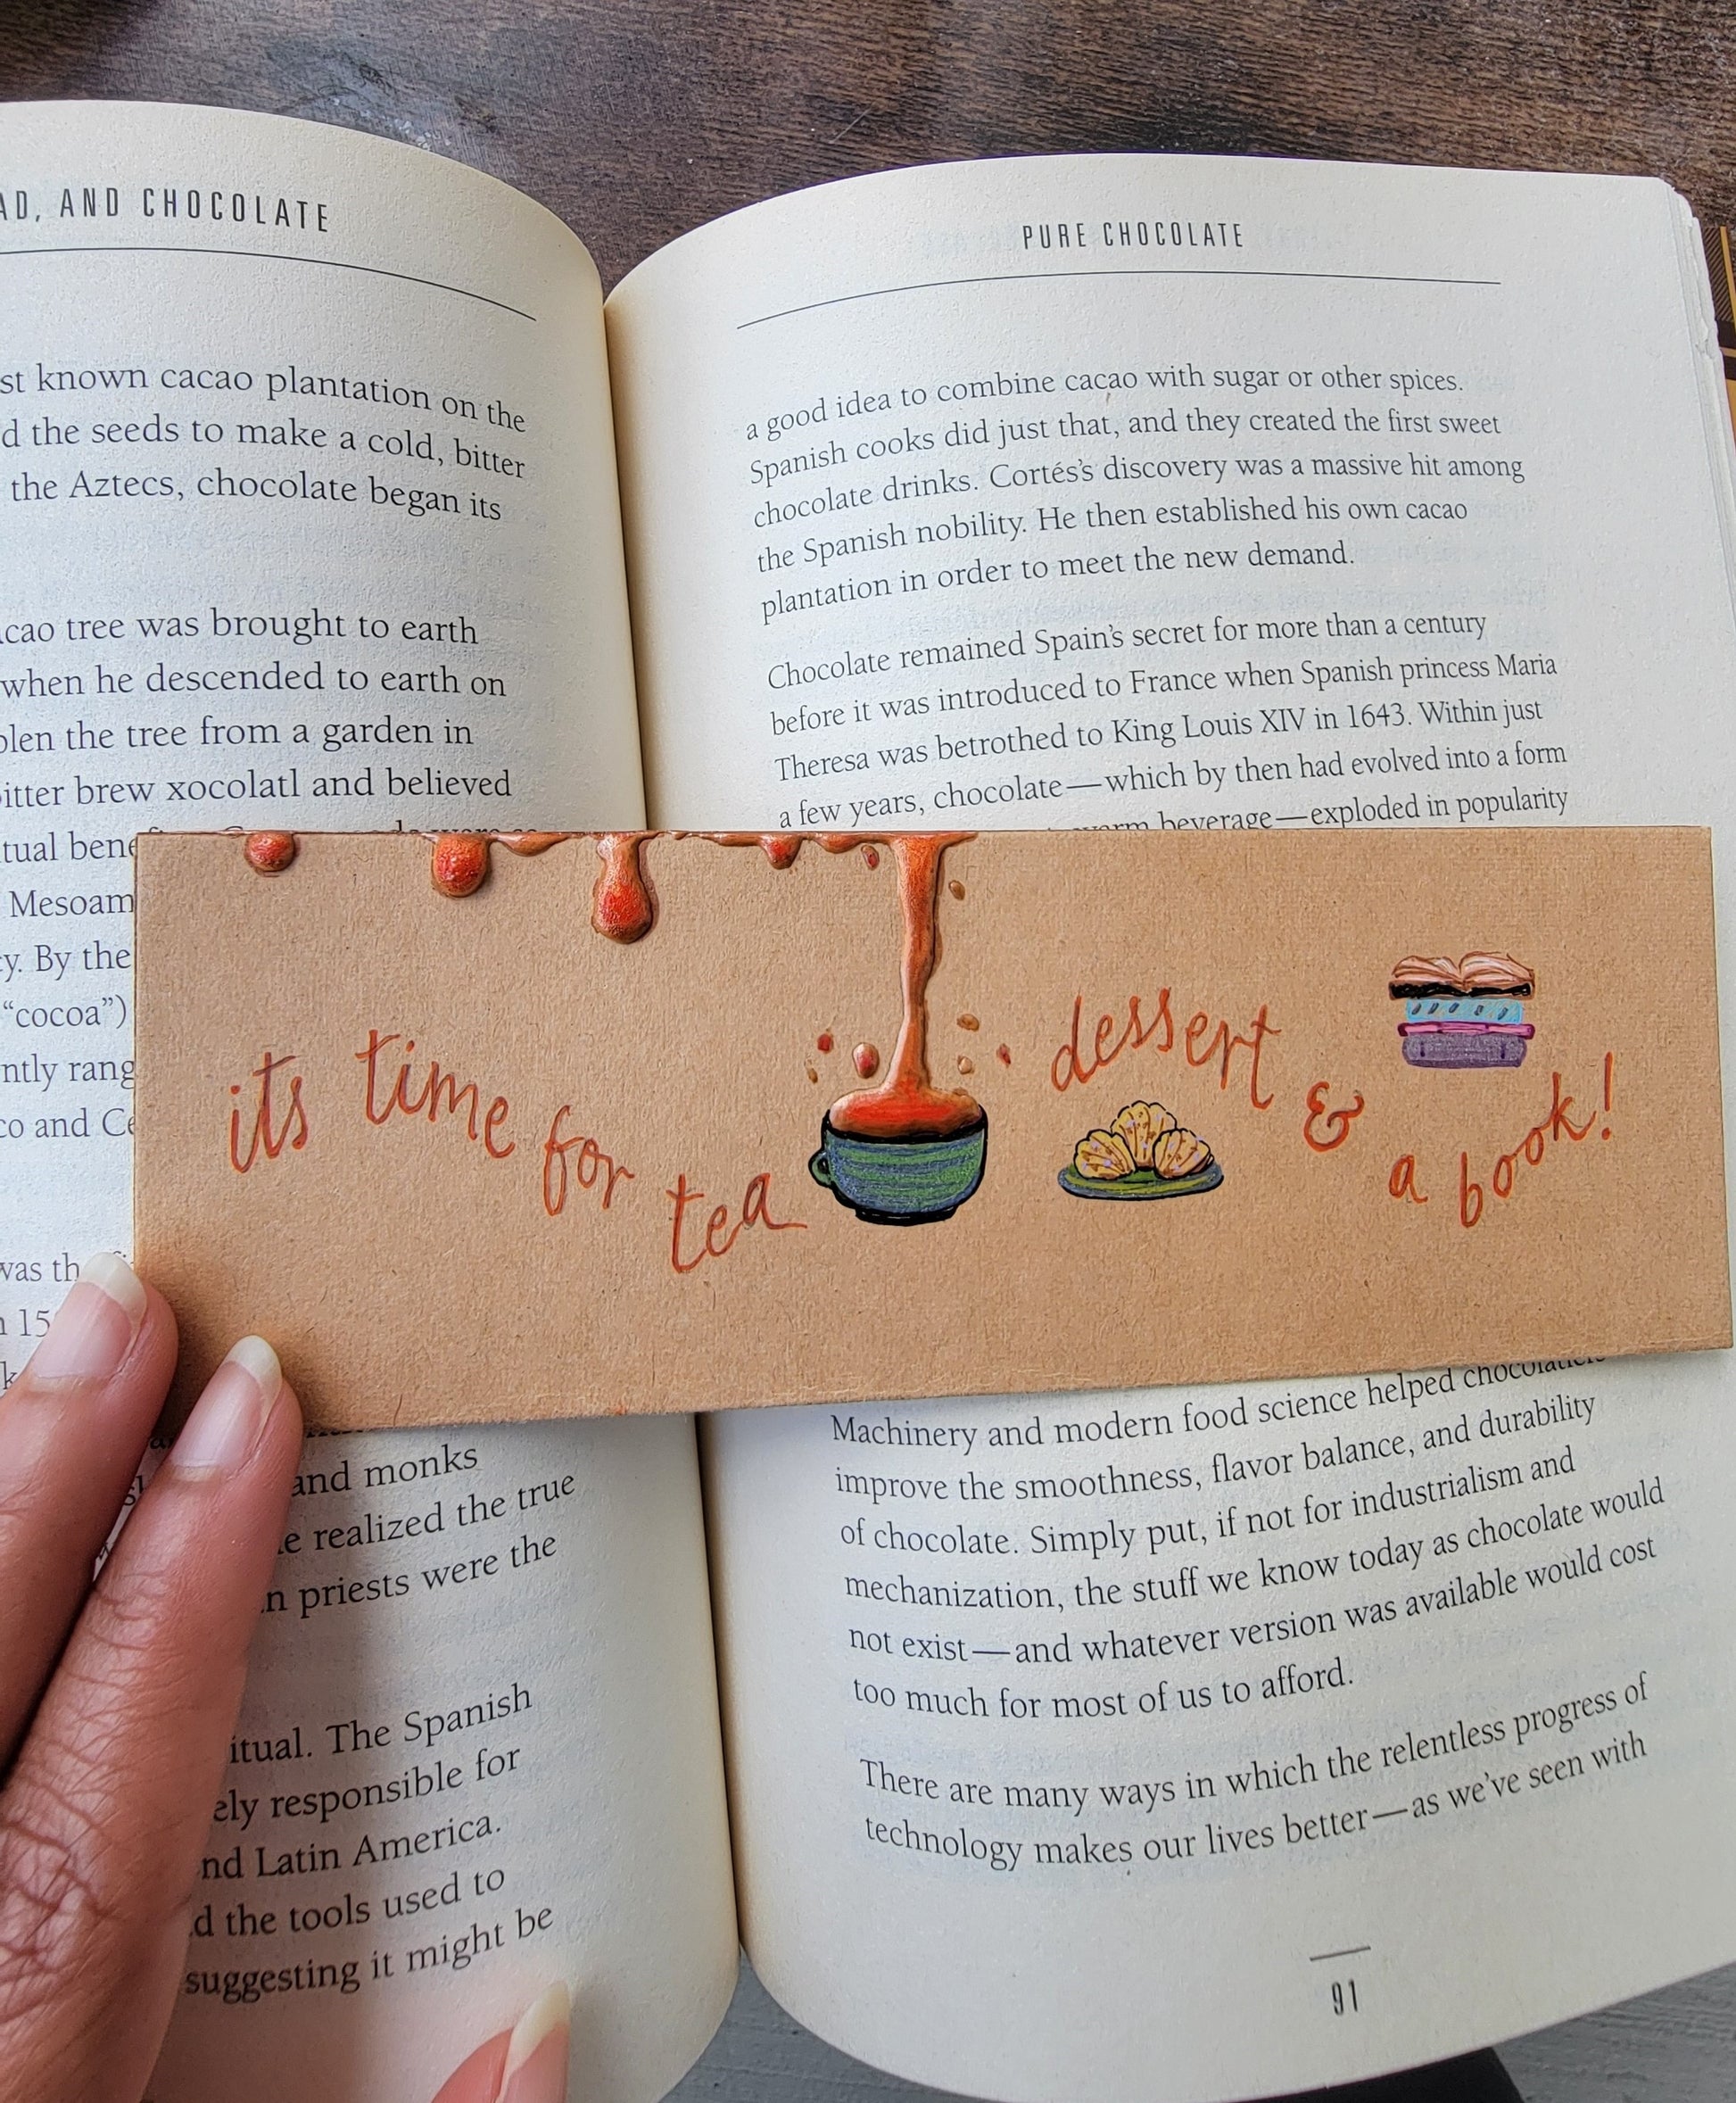 AD, AND CHOCOLATE
known cacao plantation on the
the seeds to make a cold, bitter
the Aztecs, chocolate began its
tree was brought to earth
when he descended to earth on
the tree from a garden in
brew xocolatl and believed
Mesoam
By the
“cocoa”)
rang
co and
was
15
and monks
realized the true
priests were the
The Spanish
responsible for
Latin America.
the tools used to
suggesting it might be
PURE CHOCOLATE
a good idea to combine cacao with sugar or other spices.
Spanish cooks did just that, and they created the first sweet
chocolate drinks. Cortés’s discovery was a massive hit among
the Spanish nobility. He then established his own cacao
plantation in order to meet the new demand.
Chocolate remained Spain’s secret for more than a century
before it was introduced to France when Spanish princess Maria
Theresa was betrothed to King Louis XIV in 1643. Within just
a few years, chocolate—which by then had evolved into a form
beverage—exploded in popularity
its time for tea dessert & a book!
Machinery and modern food science helped
improve the smoothness, flavor balance, and durability
of chocolate. Simply put, if not for industrialism and
mechanization, the stuff we know today as chocolate would
not exist—and whatever version was available would cost
too much for most of us to afford.
There are many ways in which the relentless progress of
technology makes our lives better—as we’ve seen with
91